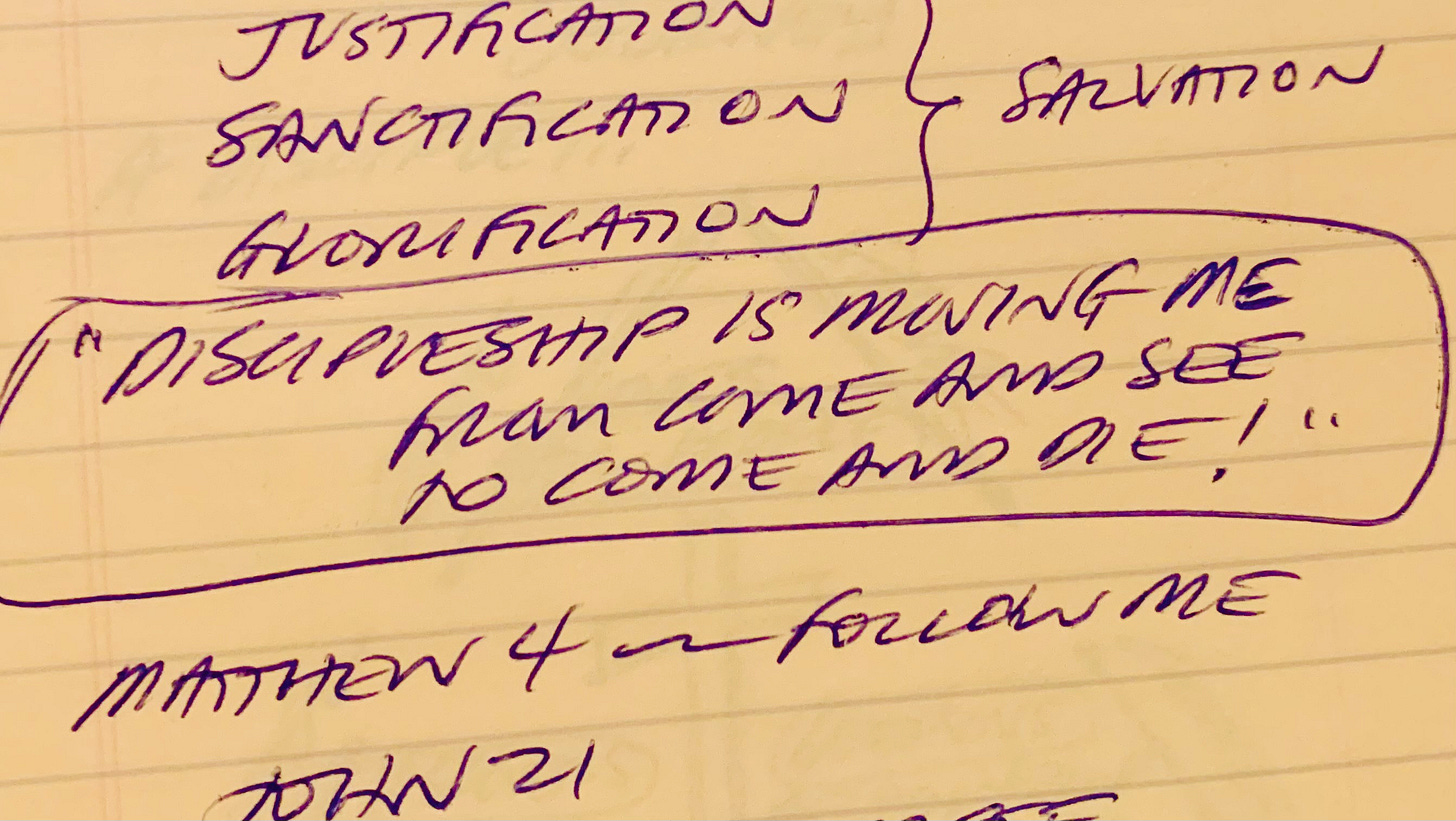 JUSTIFICATION
SANCTIFICATION } SALVATION
GLORIFICATION
"DISCIPLESHIP IS MOVING ME
FROM COME AND SEE
TO COME AND DIE!"
MATTHEW 4 ~ FOLLOW ME
JOHN 21